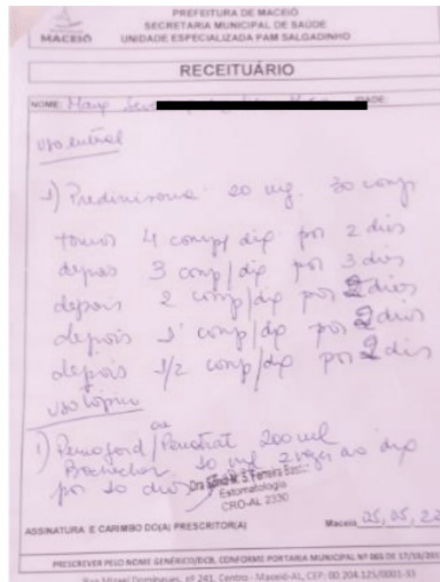 PREFEITURA DE MACEIÓ
SECRETARIA MUNICIPAL DE SAÚDE
MACEIÓ UNIDADE ESPECIALIZADA PAM SALGADINHO
RECEITUÁRIO
NOME: IDADE:
uso
1) 20 mg. 30 comp
tomar 4 comp/dia por 2 dias
depois 3 comp/dia por 3 dias
depois 2 comp/dia por 2 dias
depois 1 comp/dia por 2 dias
depois 1/2 comp/dia por 2 dias
uso tópico
1) ou 200 ml
Bochechar 10 ml 2 vezes ao dia
por 10 dias
Estomatologia
CRO-AL 2330
ASSINATURA E CARIMBO DO(A) PRESCRITOR(A) Maceió 25, 05, 22
PRESCREVER PELO NOME GENÉRICO/DCB, CONFORME PORTARIA MUNICIPAL Nº 065 DE
Nº 241, Centro - Maceió-AL, CEP: